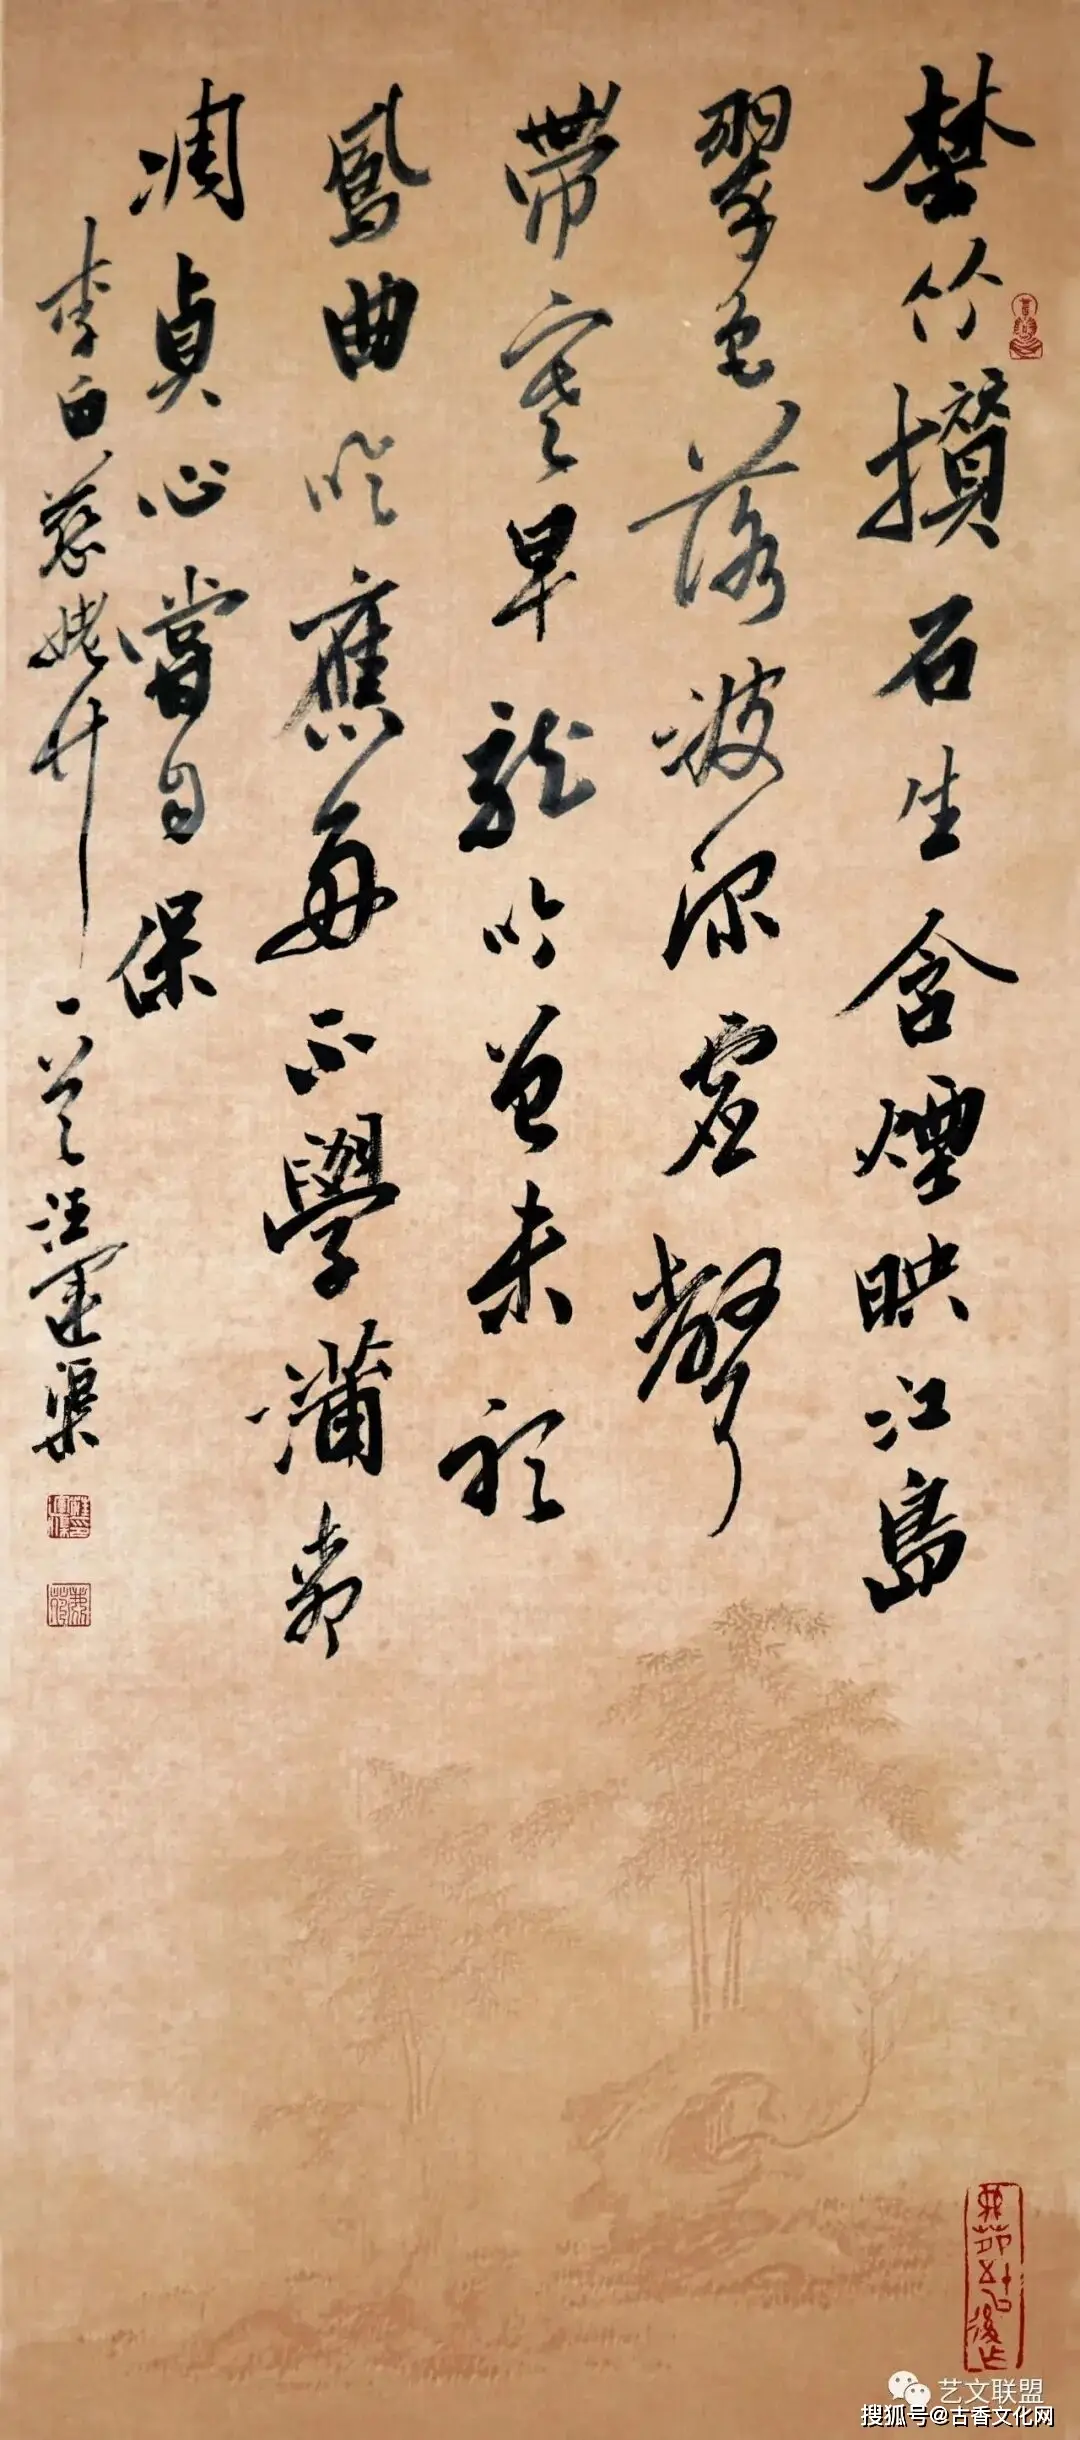 埜竹攢石生含煙映江島
翠色落波深虛聲
帶寒早龍吟曾未聽
鳳曲吹應好不學蒲柳
凋貞心嘗自保
李白慈姥竹一首汪運渠
艺文联盟
搜狐号@古香文化网